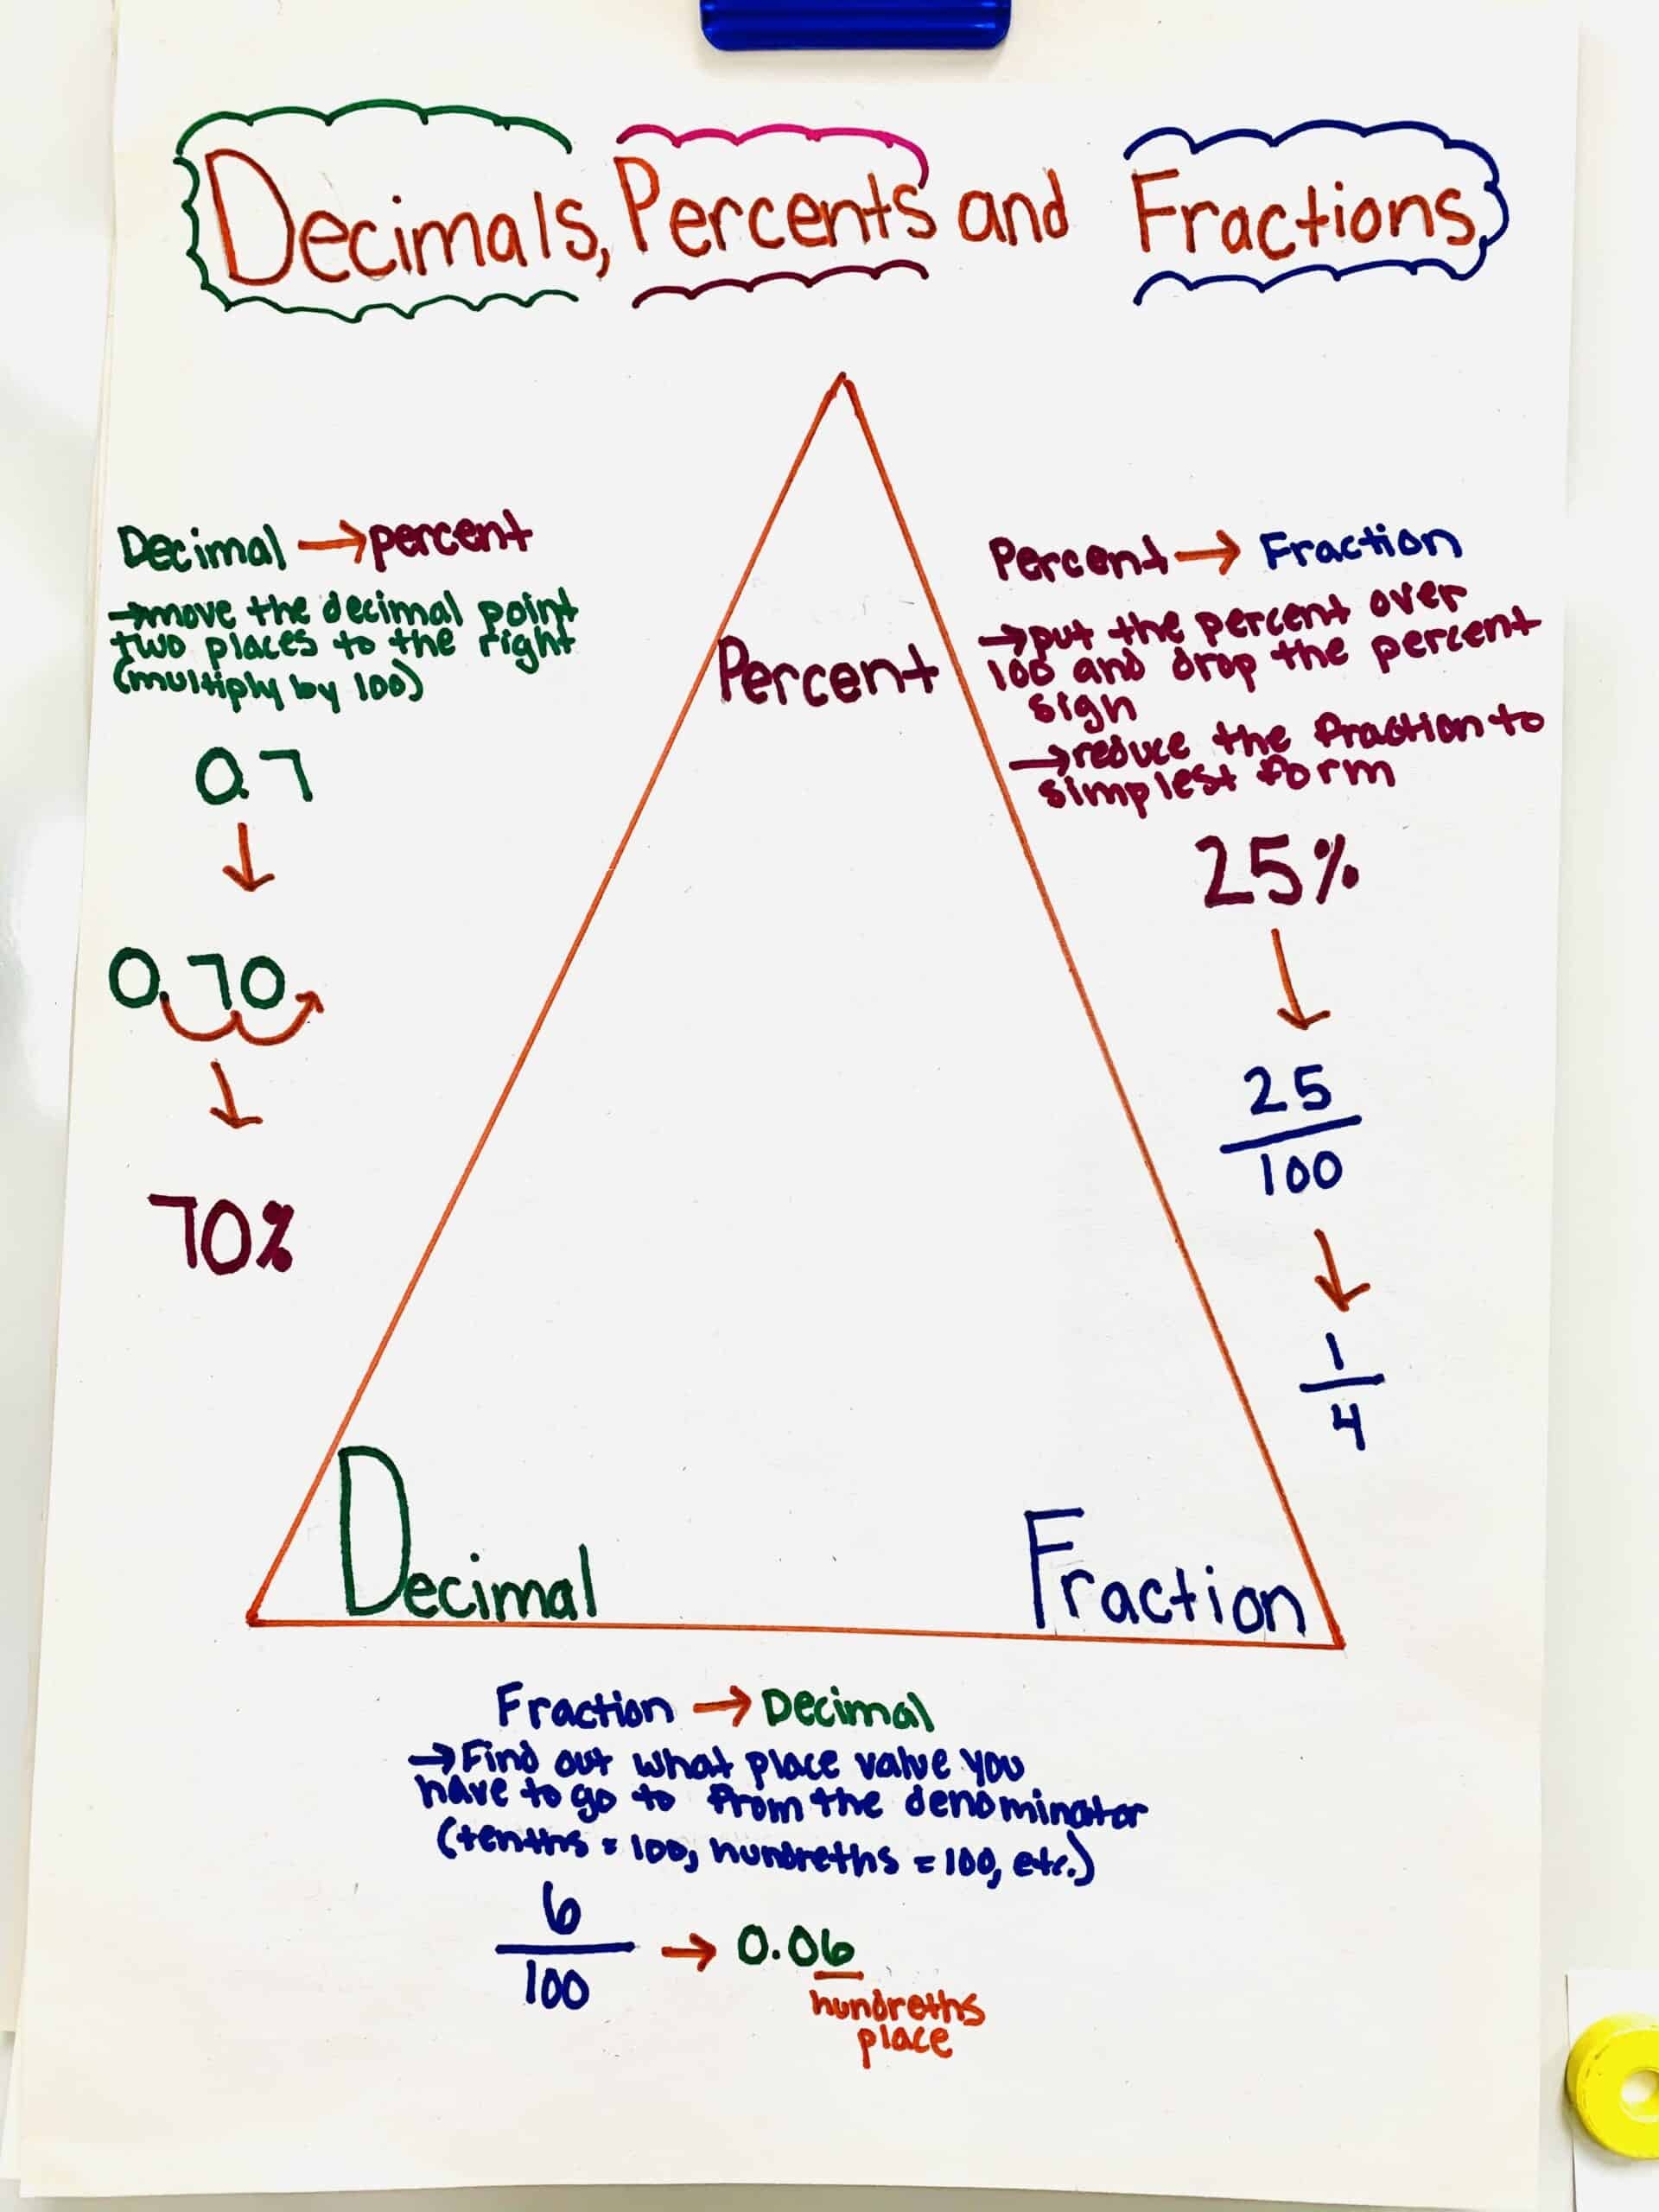 Decimals, Percents and Fractions
Decimal → percent
→move the decimal point
two places to the right
(multiply by 100)
0.7
↓
0.70
↓
70%
Percent → Fraction
→put the percent over
100 and drop the percent
sign
→reduce the fraction to
simplest form
25%
↓
25
100
↓
1
4
Percent
Decimal
Fraction
Fraction → Decimal
→Find out what place value you
have to go to from the denominator
(tenths = 100, hundreths = 100, etc.)
6
100
→ 0.06
hundreths
place